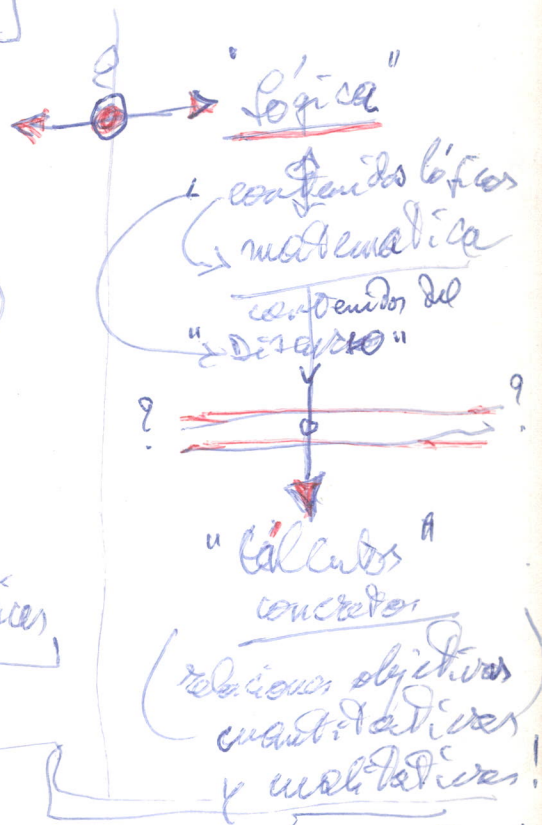 "Lógica"
contenidos lógicos
matematica
contenidos del
"Discurso"
? ?
"Cálculos"
concretos
(relaciones objetivas
cuantitativas
y cualitativas!